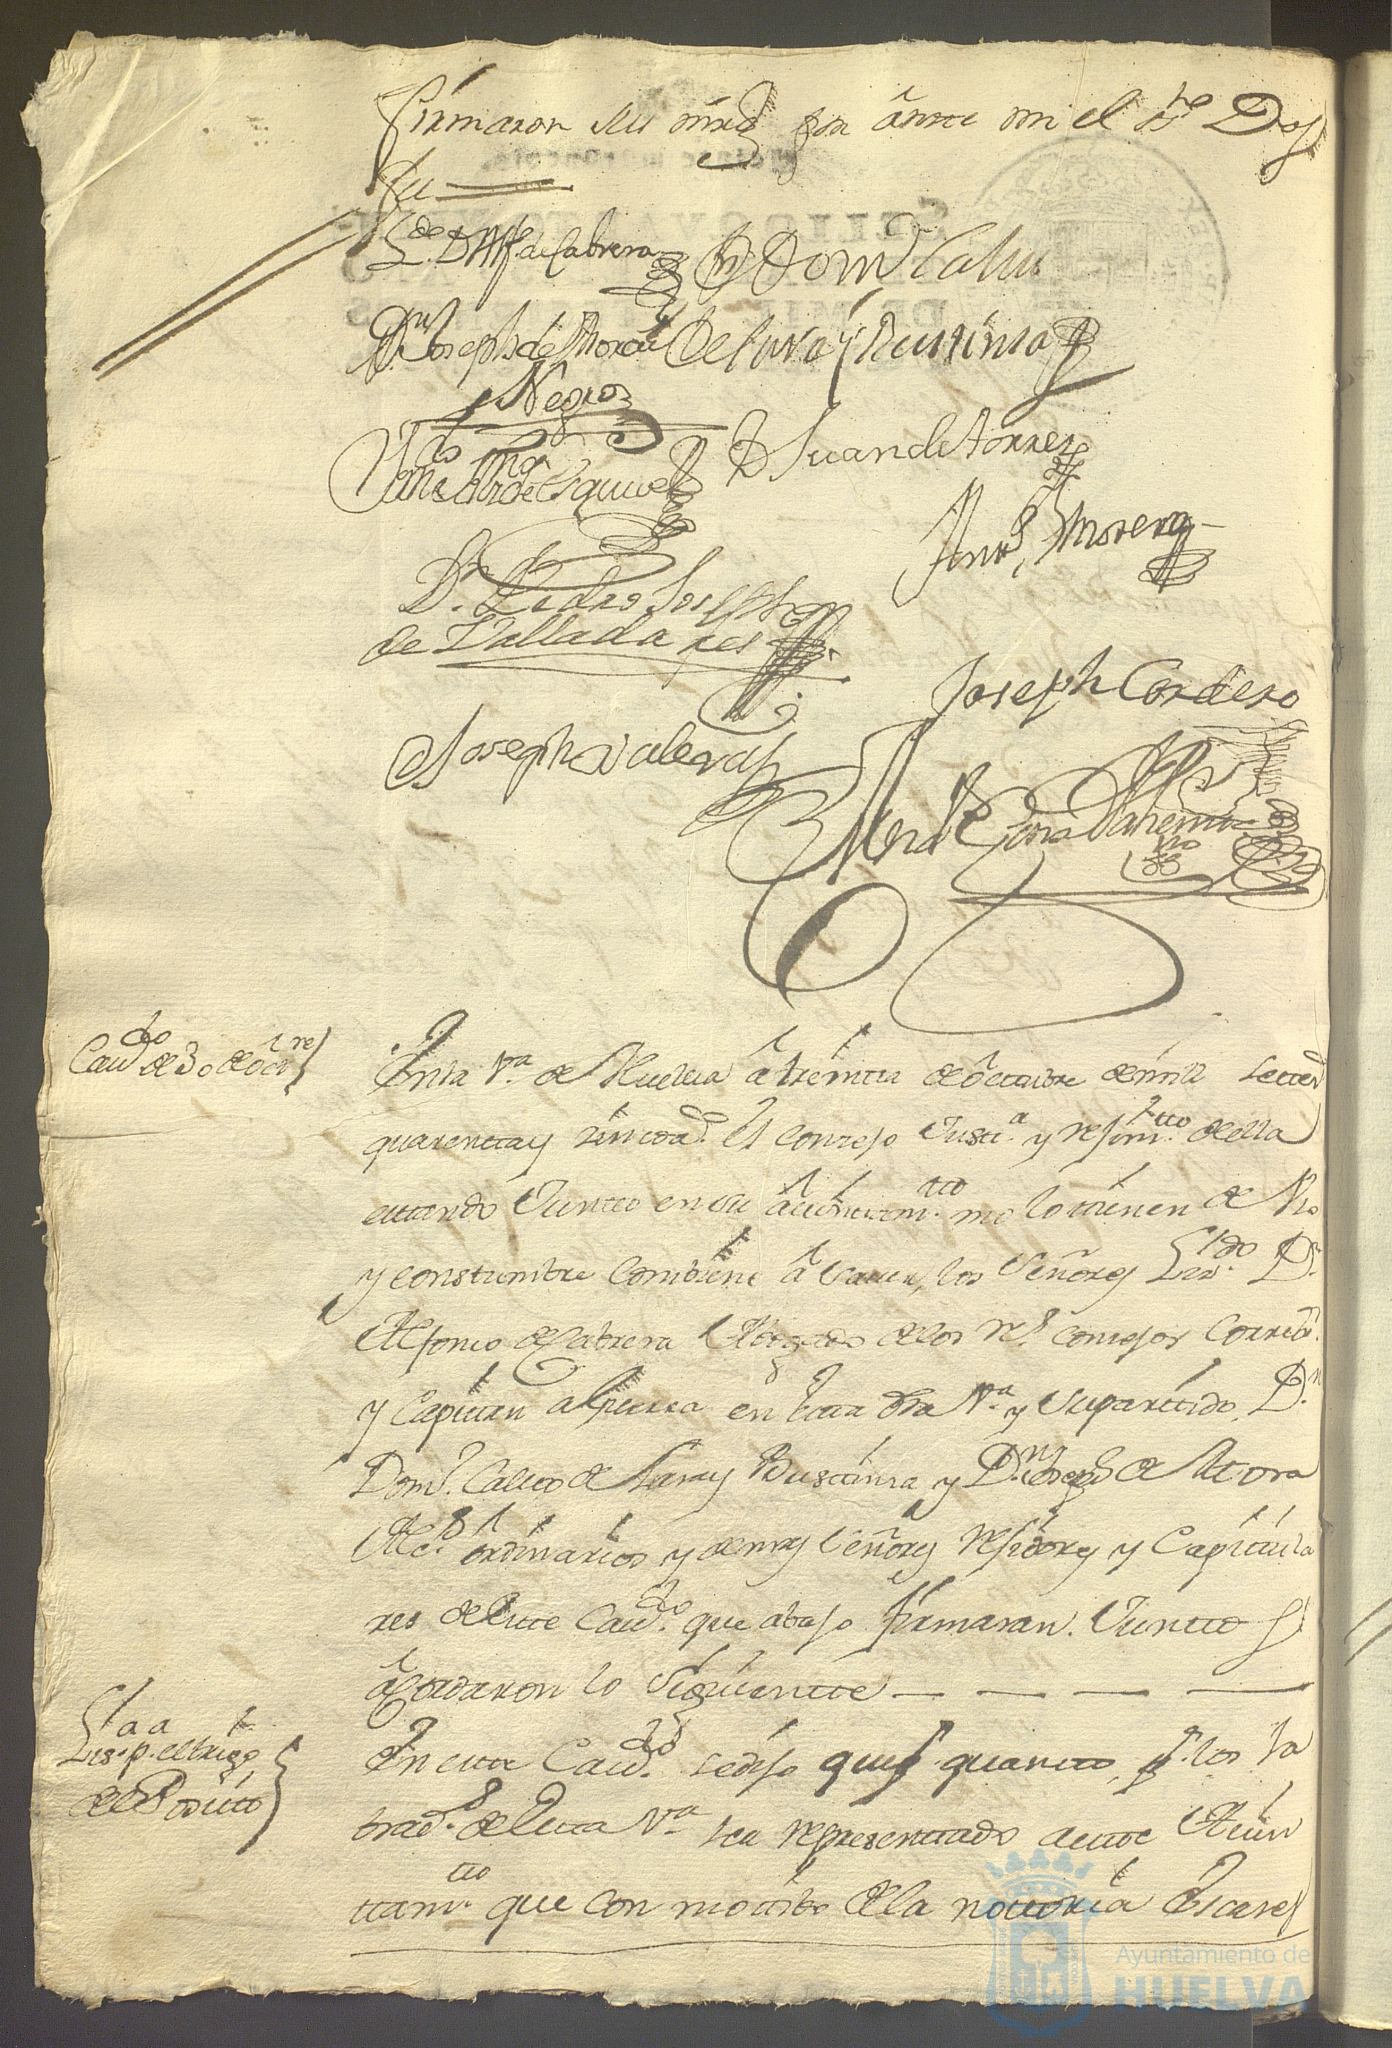 firmaron sus mrds por ante mi el esno Doy
fee
Ldo. Dn Alfo de Cabrera
Dn Domo Calvo
Dn Joseph de Mora
de Lara y Bustinza
Negro
de Esquivel
D Juan de torres
Anto. Moreno
Dn. Pedro Joseph
de Valladares
Joseph Cordero
Joseph Valera
Cavdo de 30 de octre
Enla Va. de Huelva â treinta de octubre demill settes
quarenta y a.s el Consejo Justa. y rejimto. de ella
estando Juntto en su âiuntamto. como lo tienen de Vso
y constumbre combiene â saver, los Señores Lizdo. Dn.
Alfonso de Cabrera Abogado de los Rs. Consejos Correxr.
y Capitan aguerra en esta dha Va. y su partido, Dn.
Domo. Calvo de Lara y Bustinza, y Dn. Joseph de Mora
Alcs. ordinarios y demas Señores rejidores y Capitula
res de este Cavdo. que abajo firmaran. Juntto s
acordaron lo siguiente — — — —
Liza. pa. el trigo
del Posito
En este Cavdo. se dijo que pr. quanto, pr. los la
brads. de esta Va. sea representado a este Aiun
ttamto. que con motibo de la notoria Escases
Ayuntamiento de
HUELVA